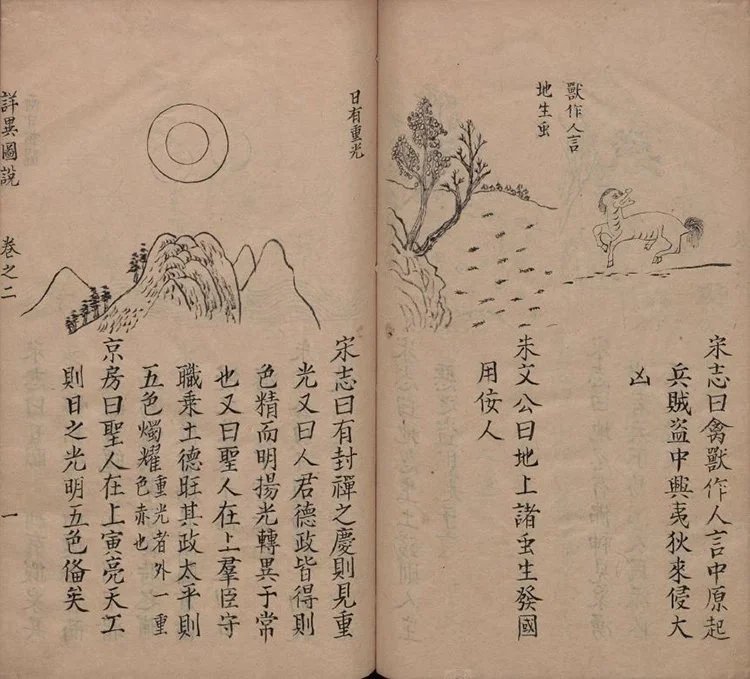 獸作人言
地生䖝
宋志曰禽獸作人言中原起
兵賊盗中興夷狄來侵大
凶
朱文公曰地上諸䖝生發國
用佞人
日有重光
宋志曰有封禪之慶則見重
光又曰人君德政皆得則
色精而明揚光轉異于常
也又曰聖人在上羣臣守
職乘土德旺其政太平則
五色燭耀重光者外一重色赤也
京房曰聖人在上寅亮天工
則日之光明五色俻矣
詳異圖說 卷之二 一